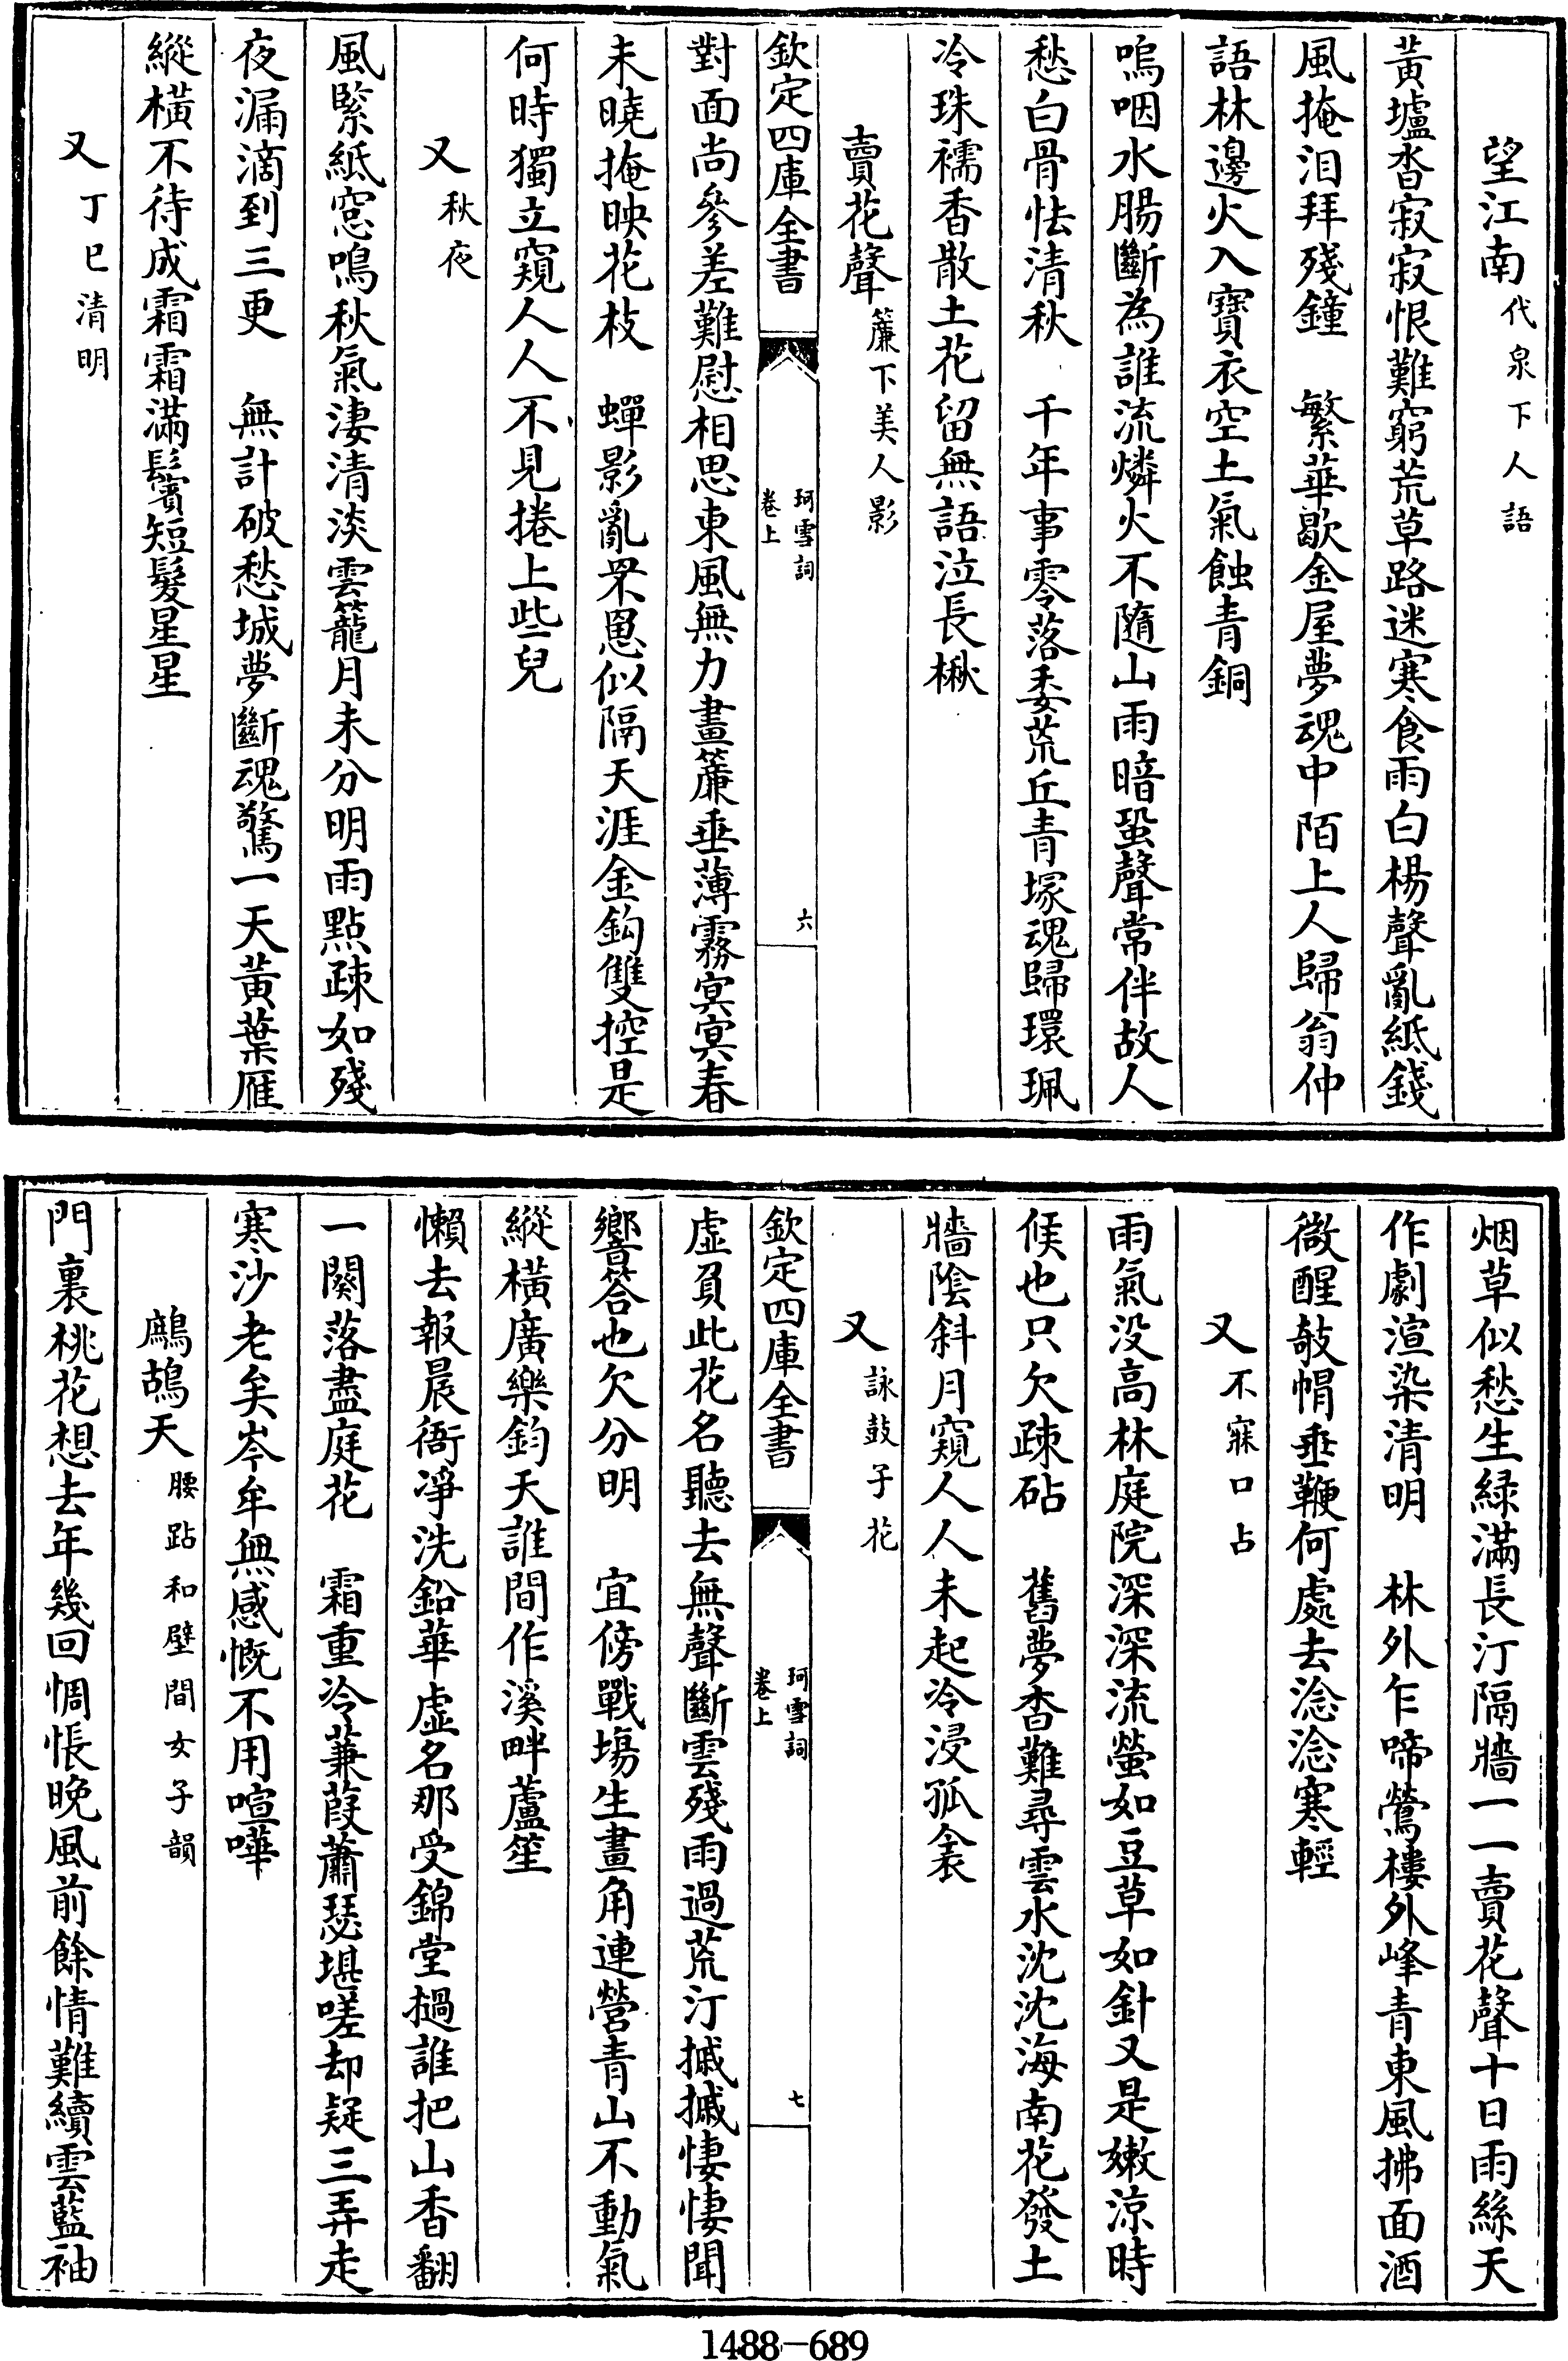 望江南代泉下人語
黃壚杳寂寂恨難窮荒草路迷寒食雨白楊聲亂紙錢
風掩泪拜殘鐘　繁華歇金屋夢魂中陌上人歸翁仲
語林邊火入寶衣空土氣蝕青銅
嗚咽水腸斷為誰流燐火不隨山雨暗蛩聲常伴故人
愁白骨怯清秋　千年事零落委荒丘青塚魂歸環珮
冷珠襦香散土花留無語泣長楸
賣花聲簾下美人影
欽定四庫全書
珂雪詞
卷上
六
對面尚參差難慰相思東風無力畫簾垂薄霧㝠㝠春
未曉掩映花枝　蟬影亂罘罳似隔天涯金鈎雙控是
何時獨立窺人人不見捲上些兒
又秋夜
風緊紙窓鳴秋氣淒清淡雲籠月未分明雨點疎如殘
夜漏滴到三更　無計破愁城夢斷魂驚一天黃葉雁
縱橫不待成霜霜滿鬢短髮星星
又丁巳清明
烟草似愁生緑滿長汀隔牆一一賣花聲十日雨絲天
作劇渲染清明　林外乍啼鶯樓外峰青東風拂面酒
微醒攲帽垂鞭何處去淰淰寒輕
又不寐口占
雨氣没高林庭院深深流螢如豆草如針又是嫩涼時
候也只欠疎砧　舊夢杳難尋雲水沈沈海南花發土
牆陰斜月窺人人未起冷浸孤衾
又詠鼓子花
欽定四庫全書
珂雪詞
卷上
七
虛負此花名聽去無聲斷雲殘雨過荒汀摵摵悽悽聞
響答也欠分明　宜傍戰塲生畫角連營青山不動氣
縱橫廣樂鈞天誰間作溪畔蘆笙
懶去報晨衙凈洗鉛華虛名那受錦堂撾誰把山香翻
一闋落盡庭花　霜重冷蒹葭蕭瑟堪嗟却疑三弄走
寒沙老矣岑牟無感慨不用喧嘩
鷓鴣天腰跕和壁間女子韻
門裏桃花想去年幾回惆悵晚風前餘情難續雲藍袖
1488-689